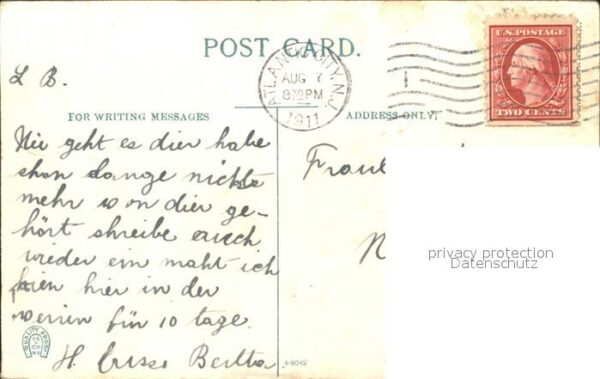 POST CARD.
ATLANTIC CITY, N.J.
AUG 7
8 30 PM
1911
U.S. POSTAGE
TWO CENTS
L B.
FOR WRITING MESSAGES
ADDRESS ONLY
Wie geht es dier habe
shon lange nichts
mehr von dier ge-
hört shreibe auch
wieder ein maht ich
bien hier in der
ferien für 10 tage.
H. Grüsse Bertha
Frau
N
privacy protection
Datenschutz
QUALITY PROOF
A-8042